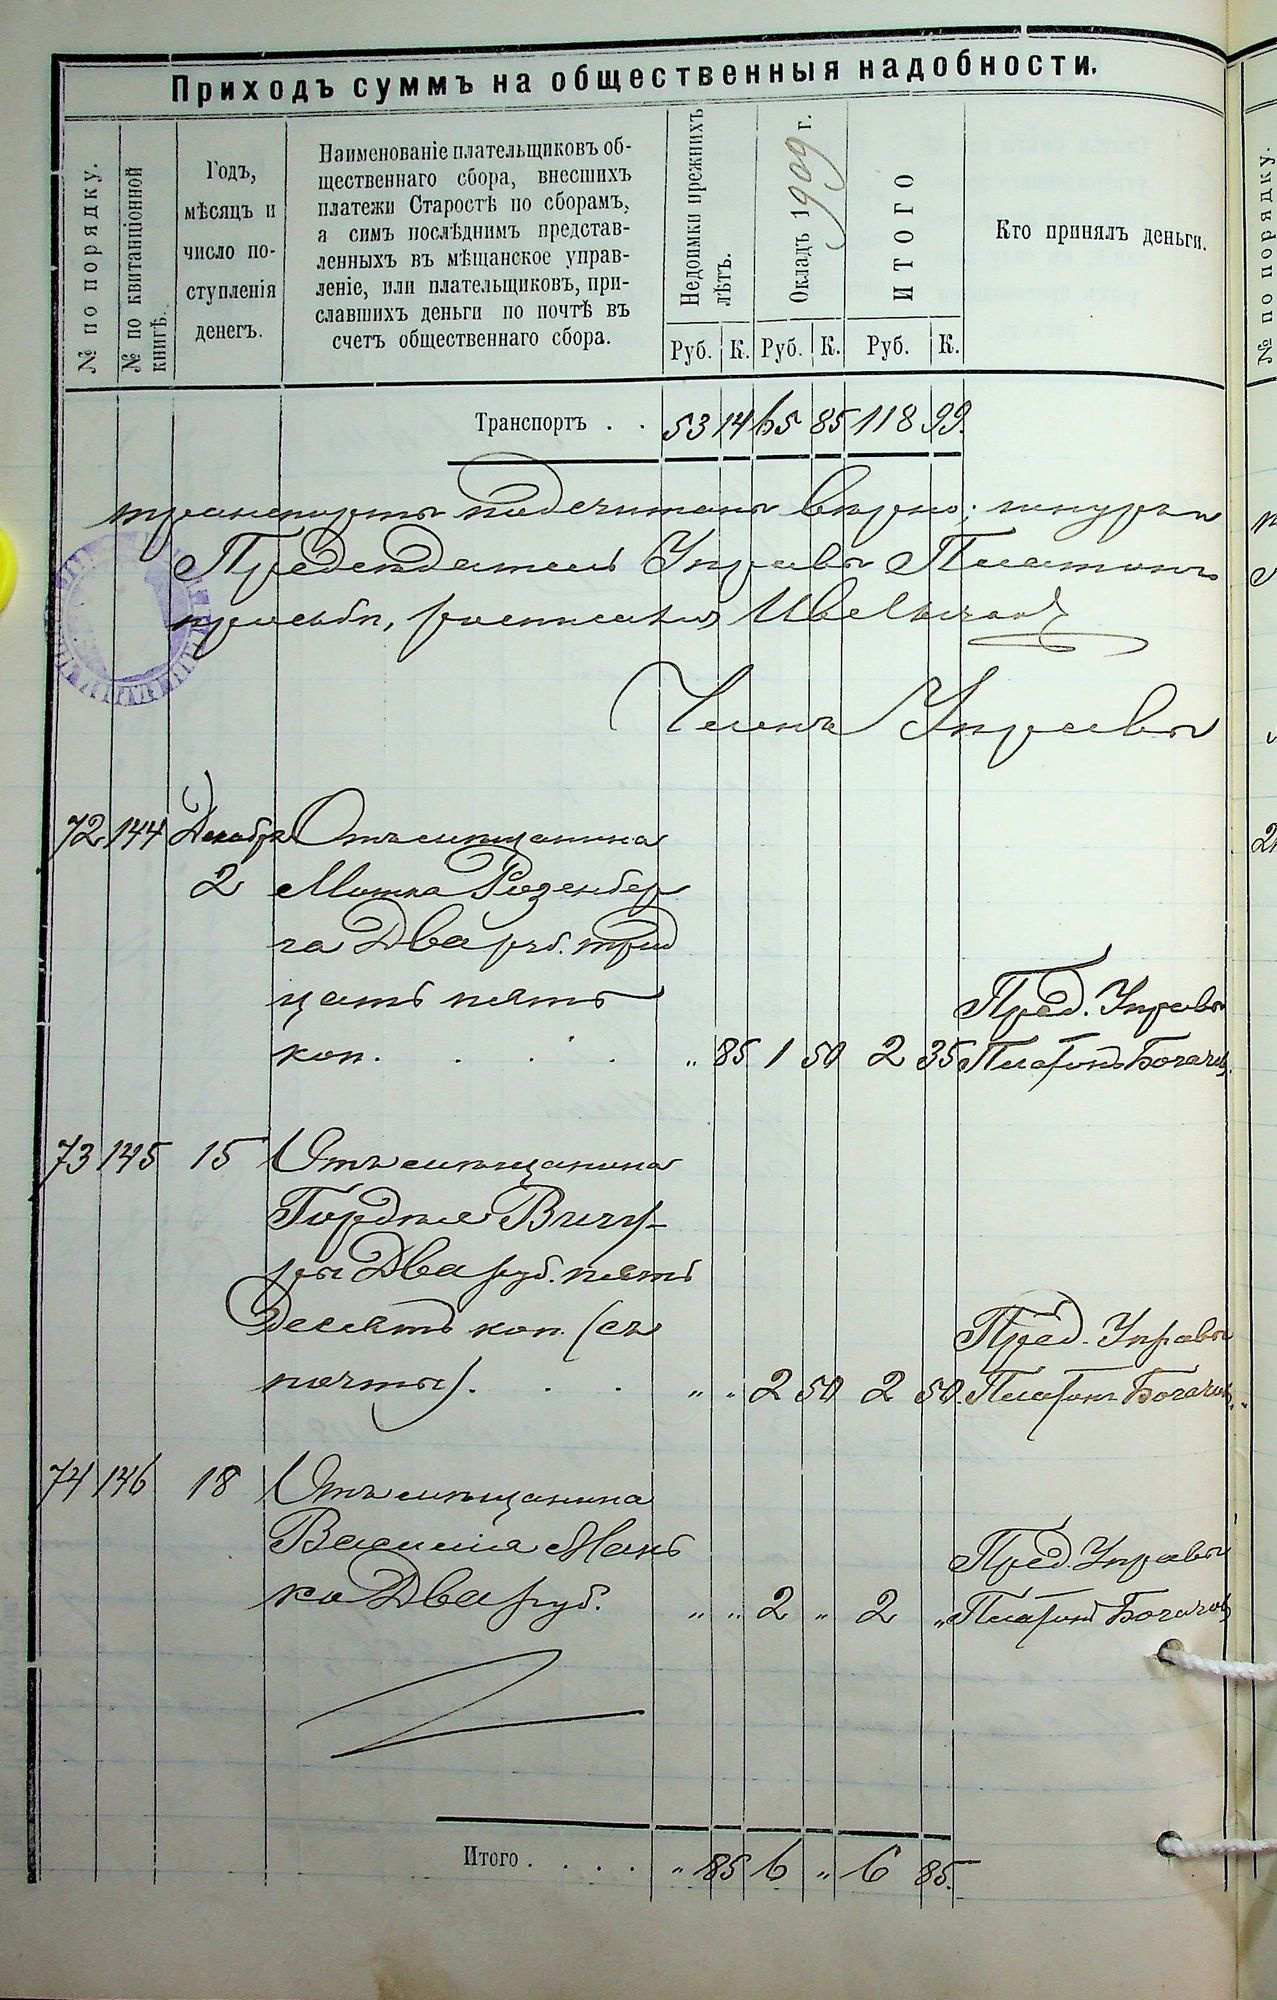 Приходъ суммъ на общественныя надобности.
№ по порядку.
№ по квитанціонной
книгѣ.
Годъ,
мѣсяцъ и
число по-
ступленія
денегъ.
Наименованіе плательщиковъ об-
щественнаго сбора, внесшихъ
платежи Старостѣ по сборамъ,
а симъ послѣднимъ представ-
ленныхъ въ мѣщанское управ-
леніе, или плательщиковъ, при-
славшихъ деньги по почтѣ въ
счетъ общественнаго сбора.
Недоимки прежнихъ
лѣтъ.
Окладъ 1909 г.
ИТОГО
Кто принялъ деньги.
Руб. К. Руб. К. Руб. К.
№ по порядку.
Транспортъ . . 53 14 65 85 118 99.
транспортъ подсчитанъ вѣрно;
Предсѣдатель Управы
Членъ Управы
72 144 Декабря Отъ мѣщанина
2 Мошка Розенбер
га Два руб. трид
цать пять
коп. . . . . „ 85 1 50 2 35
Пред. Управы
Платонъ Богачевъ
73 145 15 Отъ мѣщанина
Гордѣя Вичу-
ры Два руб. пять
десятъ коп. (съ
почты). . . . „ „ 2 50 2 50.
Пред. Управы
Платонъ Богачевъ
74 146 18 Отъ мѣщанина
Василія Мань
ко Два руб. „ „ 2 „ 2 „
Пред. Управы
Платонъ Богачевъ
Итого . . . . „ 85 6 „ 6 85.